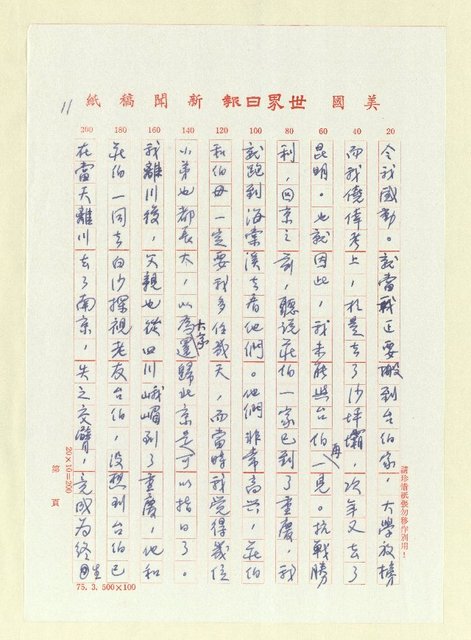 美國世界日報新聞稿紙
11
20
40
60
80
100
120
140
160
180
200
令我感動。就當我正要搬到台伯家，大學放榜
而我僥倖考上，於是去了沙坪壩，次年又去了
昆明。也就因此，我未能與台伯再一見。抗戰勝
利，回京之前，聽說莊伯一家已到了重慶，我
就跑到海棠溪去看他們。他們非常高興，莊伯
和伯母一定要我多住幾天，而當時我覺得幾位
小弟也都長大，以為大家還歸北京是可以指日了。
我離川後，父親也從四川峨嵋到了重慶，他和
莊伯一同去白沙探視老友台伯，沒想到台伯已
在當天離川去了南京，失之交臂，竟成為終生
請珍惜紙張勿移作別用！
20×10=200
第 頁
75. 3. 500×100